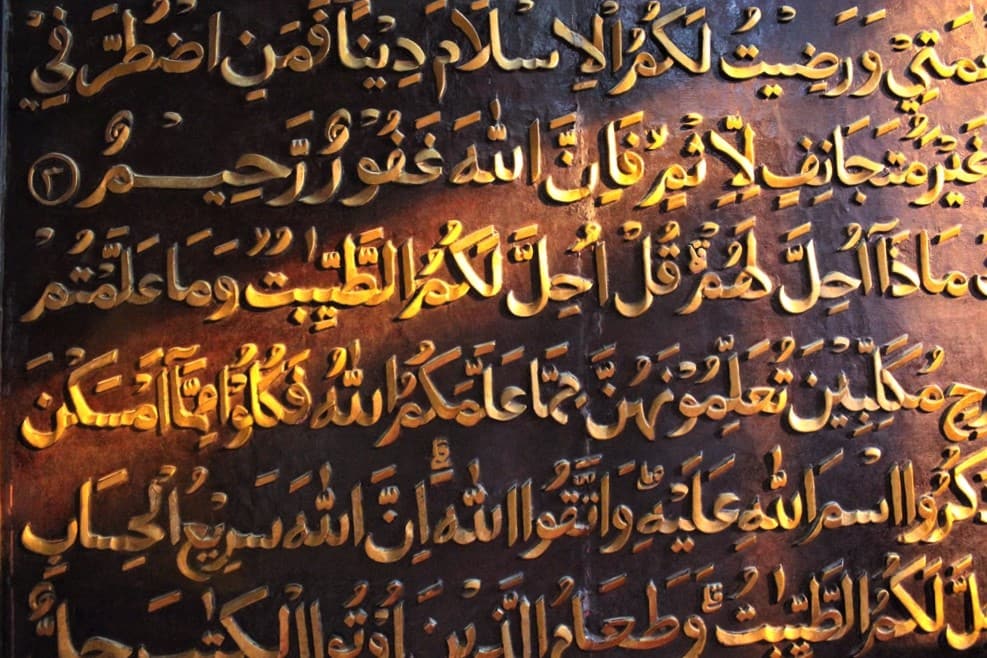 نِعْمَتِيْ وَرَضِيْتُ لَكُمُ الْاِسْلَامَ دِيْنًاۗ فَمَنِ اضْطُرَّ فِيْ
غَيْرَ مُتَجَانِفٍ لِّاِثْمٍۙ فَاِنَّ اللّٰهَ غَفُوْرٌ رَّحِيْمٌ ٣
مَاذَآ اُحِلَّ لَهُمْۗ قُلْ اُحِلَّ لَكُمُ الطَّيِّبٰتُۙ وَمَا عَلَّمْتُمْ
مُكَلِّبِيْنَ تُعَلِّمُوْنَهُنَّ مِمَّا عَلَّمَكُمُ اللّٰهُ فَكُلُوْا مِمَّآ اَمْسَكْنَ
اذْكُرُوا اسْمَ اللّٰهِ عَلَيْهِۖ وَاتَّقُوا اللّٰهَۗ اِنَّ اللّٰهَ سَرِيْعُ الْحِسَابِ
اُحِلَّ لَكُمُ الطَّيِّبٰتُۗ وَطَعَامُ الَّذِيْنَ اُوْتُوا الْكِتٰبَ حِلٌّ